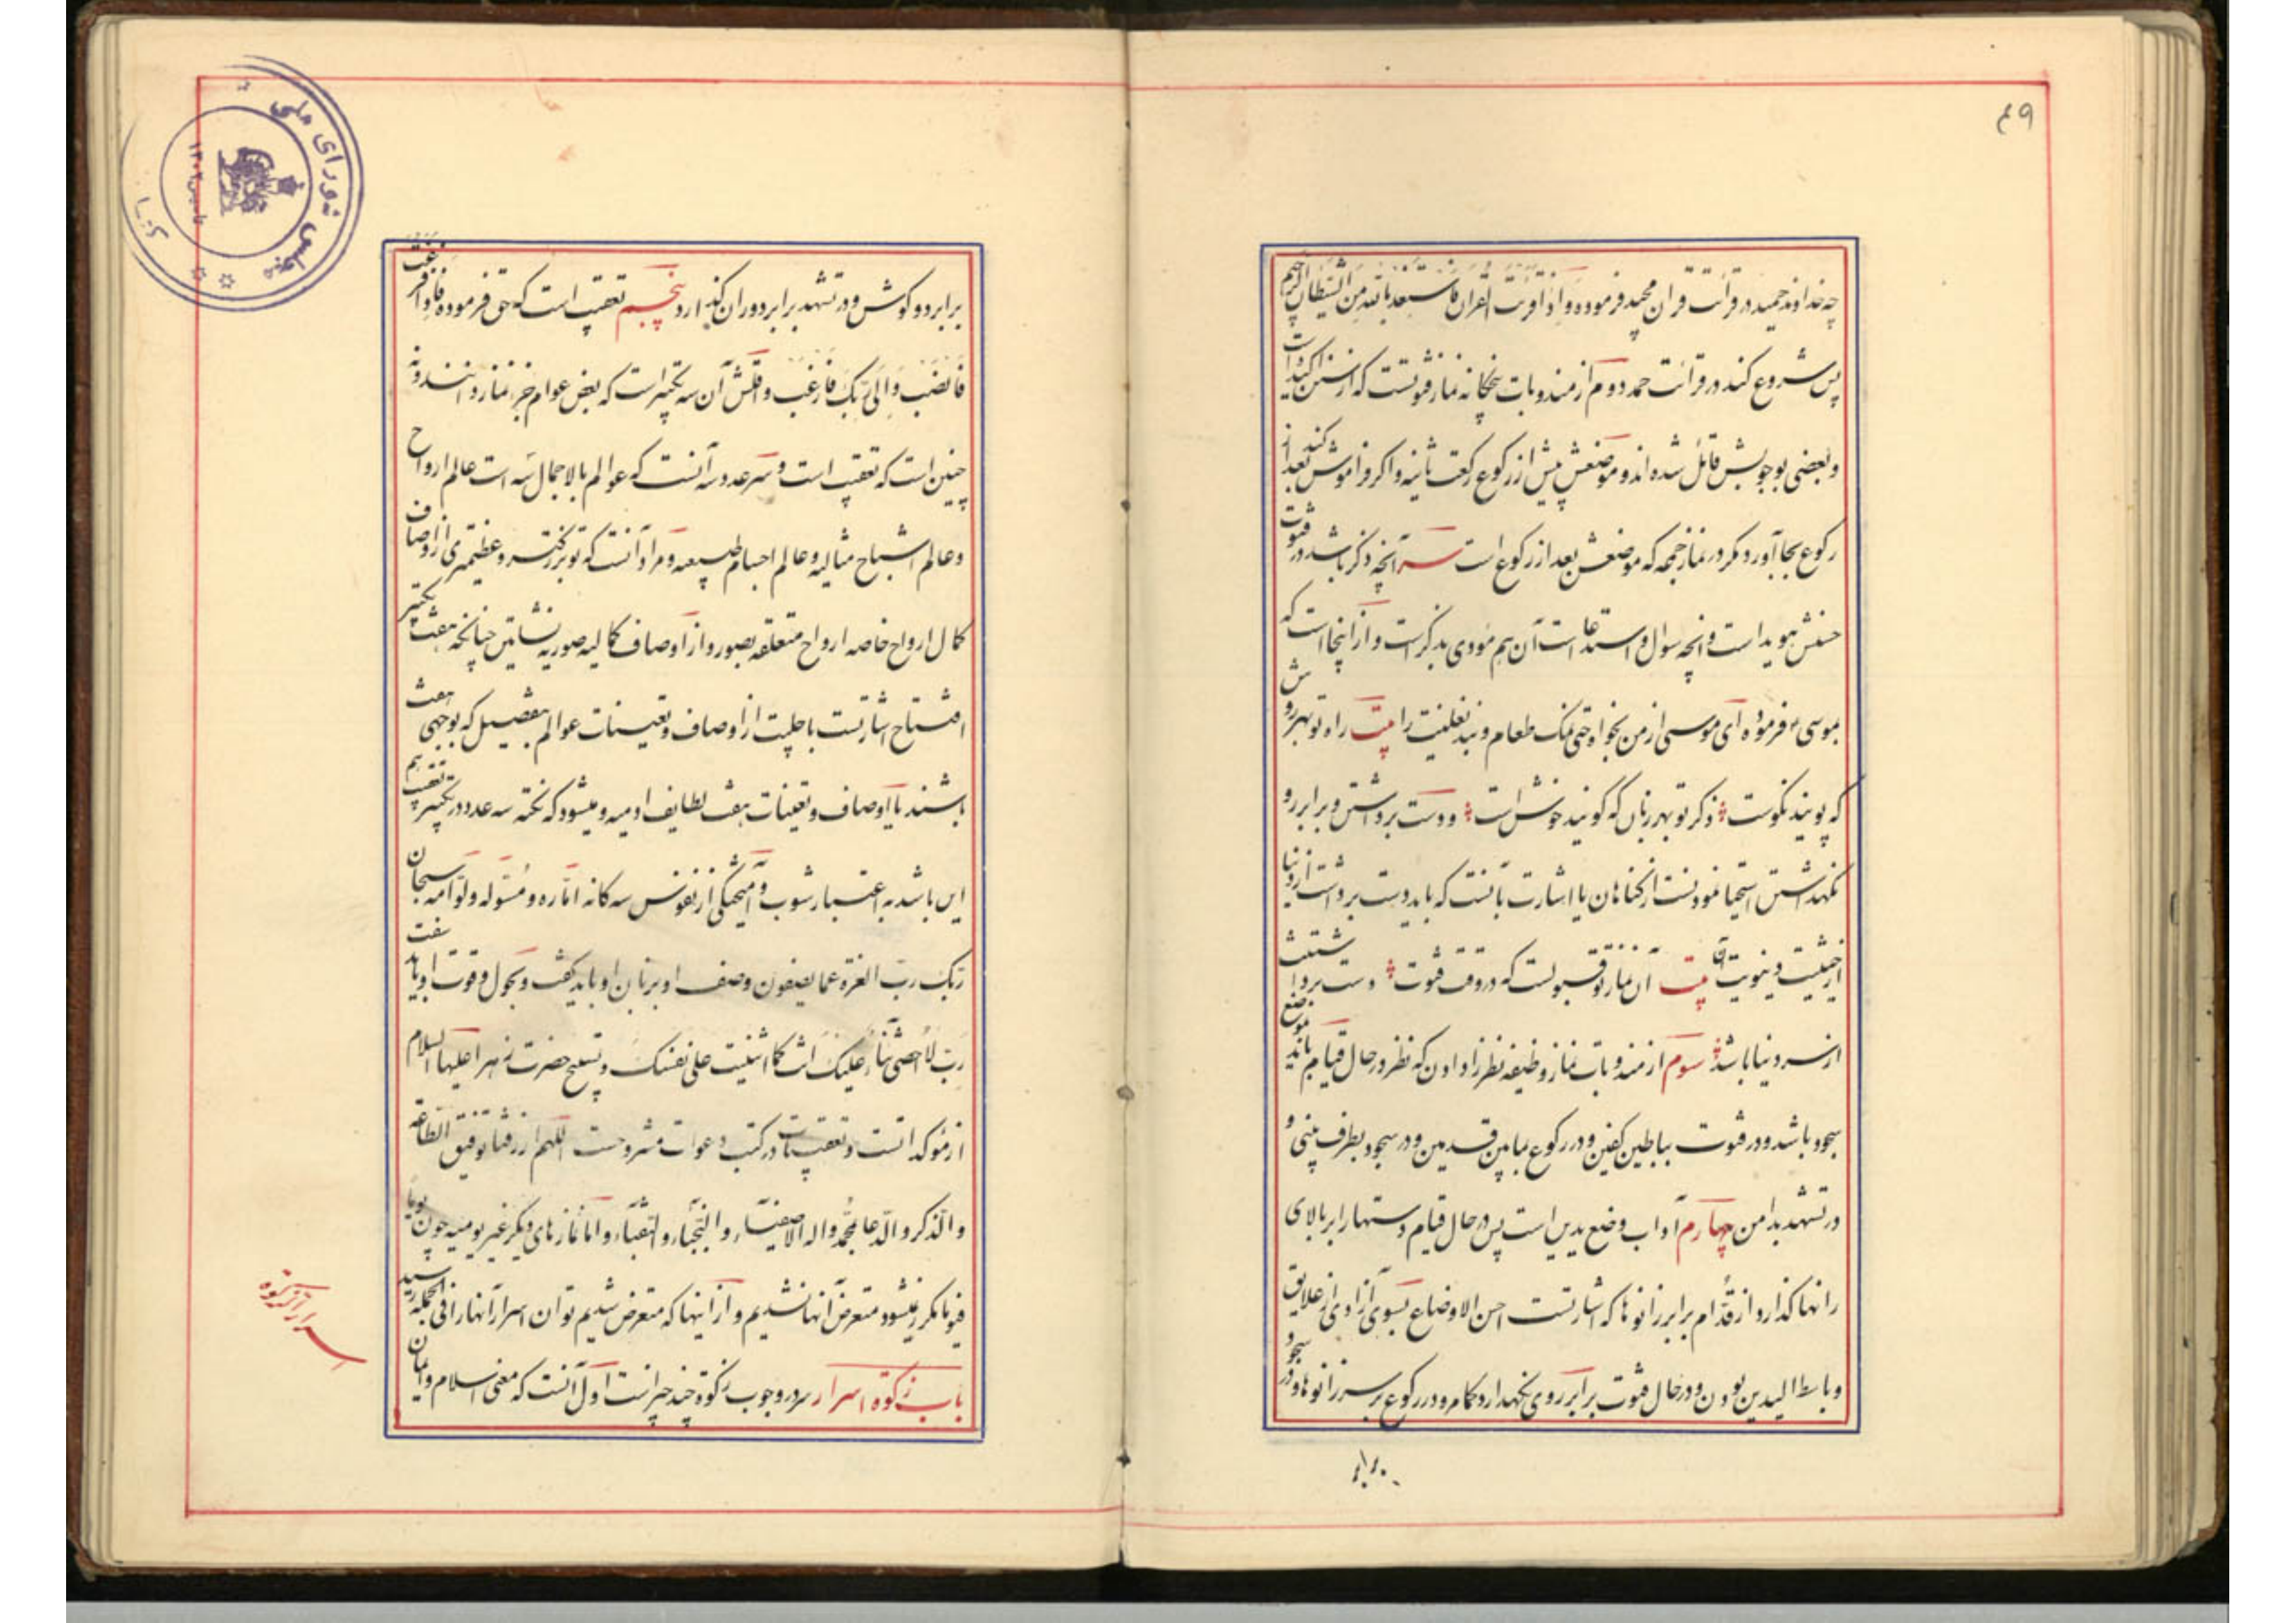 ۴۹
چه خداوند حمید در قرائت قران مجید فرموده وَاِذا قرئت القران فاستعذ بالله من الشیطان الرجیم
پس شروع کند در قرائت حمد دوم از مندوبات پنجگانه نماز قنوتست که از سنن اکیده است
و بعضی بوجوبش قائل شده‌اند و موضعش پیش از رکوع رکعت ثانیه و اکر فراموش کند بعد از
رکوع بجا آورد مکر در نماز جمعه که موضعش بعد از رکوع است سر آنچه ذکر باشد در قنوت
حسنش هویداست و آنچه سوال و استدعا است آن هم مودی بذکر است و از اینجا است که
بموسی ع فرموده ای موسی از من بخواه حتی نمک طعام و بند نعلینت را بیت راه تو بهر روش
که پویند نکوست ذکر تو بهر زبان که کویند خوش است و دست برداشتن و برابر رو
نکهداشتن استحیا نمودنست از کناهان یا اشارت بآنست که باید دست برداشت از دنیا
از حیثیت دنیویت آن بیت آن نماز تو قبولست که در وقت قنوت دست برداشتنت
از سر دنیا باشد سوم از مندوبات نماز وظیفه نظر دادن که نظر در حال قیام باید بموضع
سجود باشد و در قنوت بباطن کفین و در رکوع بمابین قدمین و در سجود بطرف بینی و
در تشهد بدامن چهارم آداب وضع یدین است پس در حال قیام دستها را بر بالای
رانها کذارد از قدّام برابر زانوها که اشارتست احسن الاوضاع بسوی آزادی از علایق
و باسط الیدین بودن و در حال قنوت برابر روی نکهدارد کما مر و در رکوع بر سر زانوها و در سجود
برابر دو کوش و در تشهد برابر دو ران کذارد پنجم تعقیب است که حق فرموده فاذا فرغت
فانصب وَاِلی ربّک فارغب و اقلش آن سه تکبیر است که بعض عوام جزء نماز دانند و نه
چنین است که تعقیب است و سر عدد سه آنست که عوالم بالاجمال سه است عالم ارواح
و عالم اشباح مثالیه و عالم اجسام طبیعیه و مراد آنست که تو بزرکتر و عظیمتری از اوصاف
کمال ارواح خاصه ارواح متعلقه بصور و از اوصاف کمالیه صوریه نشاتین چنانکه هفت تکبیر
افتتاح اشارتست باجلیت از اوصاف و تعینات عوالم بتفصیل که بوجهی هفت
باشند یا اوصاف و تعینات هفت لطایف ادمیه و میشود که نکته سه عدد در تکبیر تعقیب هم
این باشد به اعتبار شوب و آمیختکی از نفوس سه کانه امّاره و مسوّله و لوّامه سبحان
ربّک ربّ العزة عما یصفون وصف او بزبان او باید کفت و بحول و قوت او باید
ربّ لا احصی ثناء علیک انت کما اثنیت علی نفسک و تسبیح حضرت زهرا علیها السلام
از مؤکداتست و تعقیبات در کتب دعوات مشروحست اللهم ارزقنا توفیق الطاعة
والذکر والدعا بمحمّد واله الاصفیاء والنجباء والنقباء و اما نمازهای دیکر غیر یومیه چون
متعرض آنها نشدیم و از اینها که متعرض شدیم توان اسرار آنها را فی الجمله رسید
باب زکوة اسرار سر در وجوب زکوة چند چیز است اول آنست که معنی اسلام و ایمان
اسرار زکوة
مجلس شورای ملی